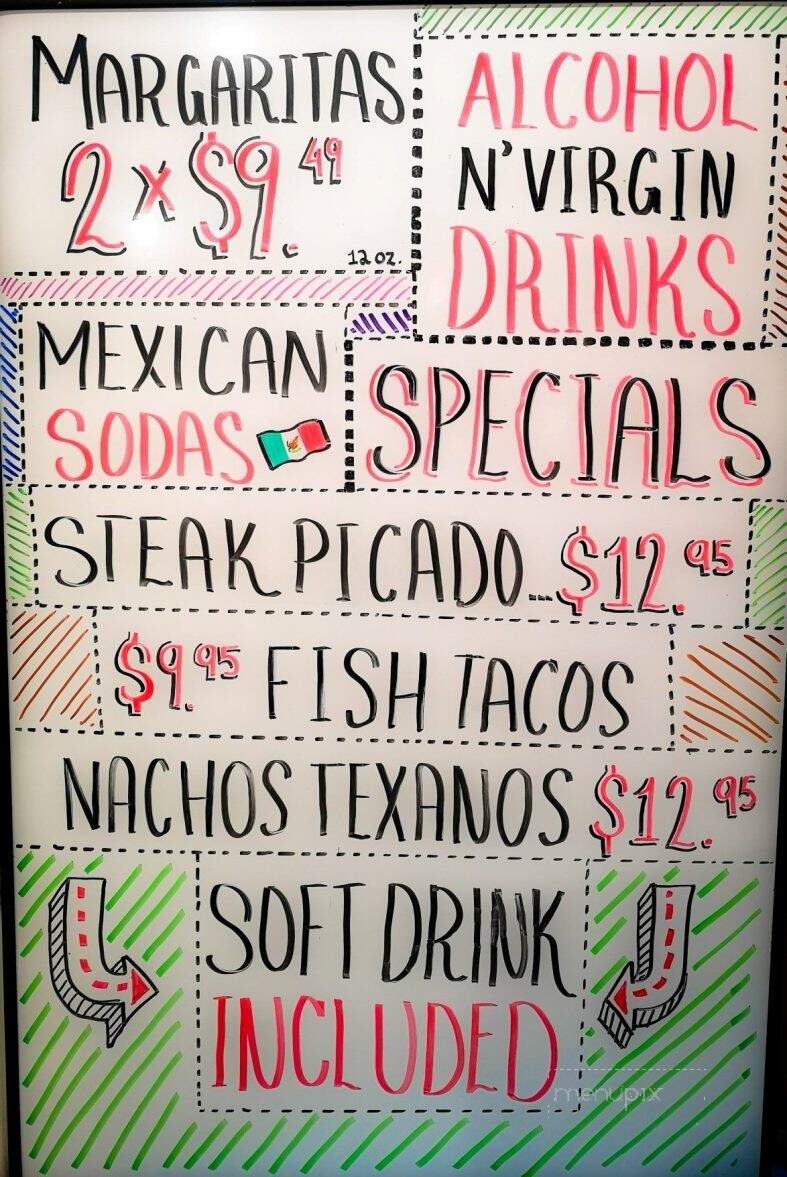 MARGARITAS
2 x $9.49
12 oz.
ALCOHOL
N' VIRGIN
DRINKS
MEXICAN
SODAS
SPECIALS
STEAK PICADO...$12.95
$9.95 FISH TACOS
NACHOS TEXANOS $12.95
SOFT DRINK
INCLUDED
menupix